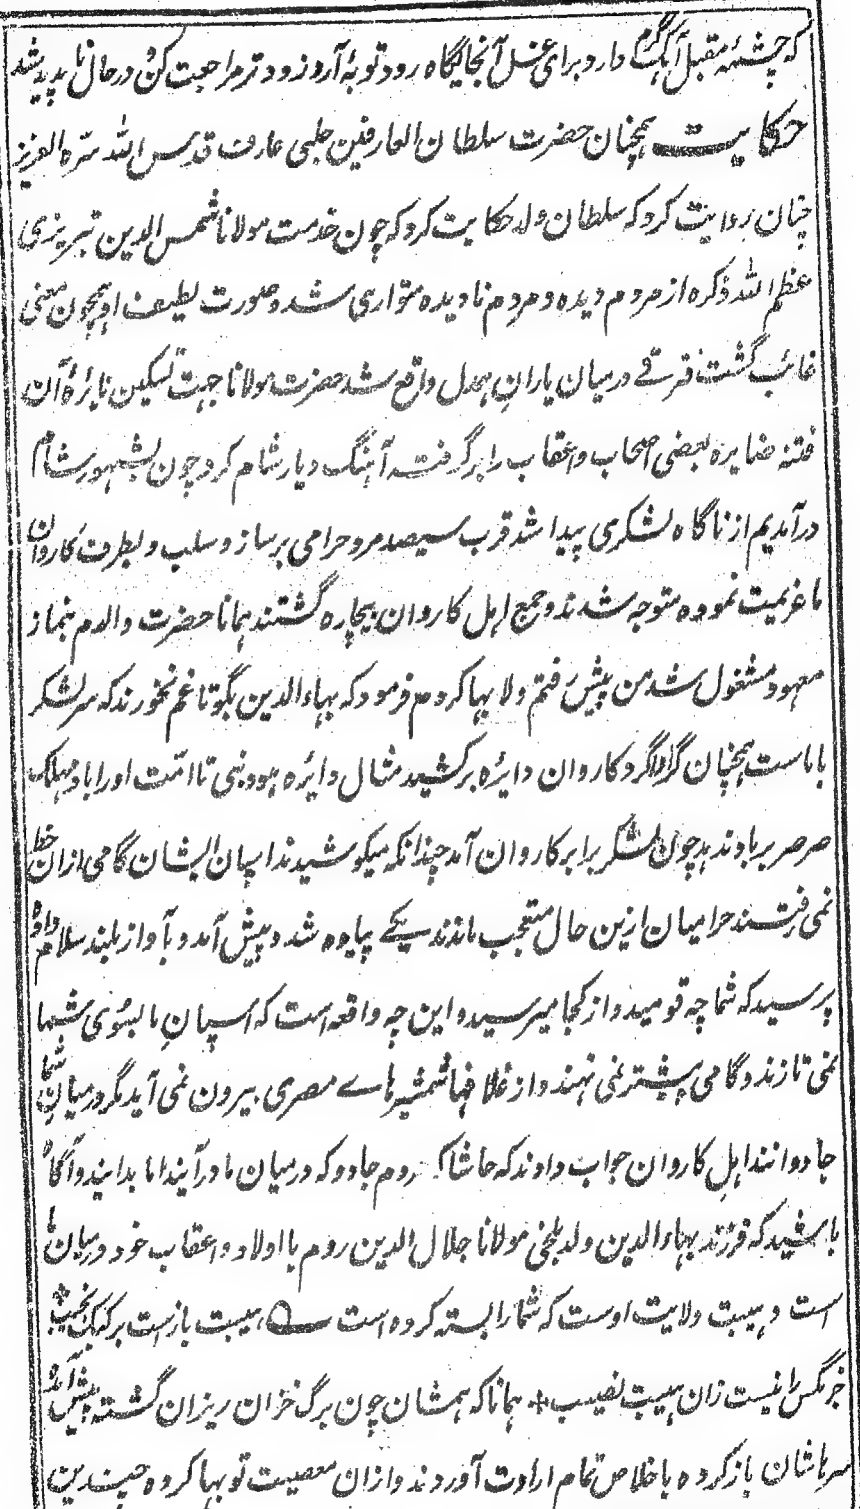 که چشمهٔ مقبل آب گرم دارد برای غسل آنجایگاه رود توبهٔ آر و زودتر مراجعت کن و در حال ناپدید شد
حکایت همچنان حضرت سلطان العارفین چلبی عارف قدس الله سره العزیز
چنان روایت کرد که سلطان ولد حکایت کرد که چون خدمت مولانا شمس الدین تبریزی
عظم الله ذکره از مردم دیده و مردم نادیده متواری شد و صورت لطیف او همچون معنی
غائب گشت فرقتے در میان یاران همدل واقع شد حضرت مولانا جهت تسکین نایرهٔ آن
فتنه ضایره بعضی اصحاب و اعقاب را برگرفته آهنگ دیار شام کرد چون بشهور شام
درآمدیم از ناگاه لشکری پیدا شد قرب سیصد مرد حرامی برساز و سلب و بطرف کاروان
ما عزیمت نموده متوجه شدند و جمیع اهل کاروان بیچاره گشتند همانا حضرت والدم بنماز
معهود مشغول شد من پیش رفتم و لابها کردم فرمود که بهاءالدین بگو تا غم نخورند که سر لشکر
با ماست همچنان گرداگرد کاروان دایره برکشید مثال دایره هود نبی تا امت او را باد مهلک
صرصر بر باد ندهد چون لشکر برابر کاروان آمد چندانکه میکوشیدند اسپان ایشان گامی ازان خط
نمی رفتند حرامیان ازین حال متعجب ماندند یکے پیاده شد و پیش آمد و بآواز بلند سلام داده
پرسید که شما چه قومید و از کجا میرسید و این چه واقعه است که اسپان ما بسوی شما
نمی تازند و گامی پیشتر نمی نهند و از غلافها شمشیرهاے مصری بیرون نمی آید مگر در میان شما
جادوانند اهل کاروان جواب دادند که حاشا که مردم جادو که در میان ما درآیند اما بدانید و آگاه
باشید که فرزند بهاءالدین ولد بلخی مولانا جلال الدین روم با اولاد و اعقاب خود در میان ما
است و هیبت ولایت اوست که شما را بسته کرده است ؎ هیبت باز است بر کبک نجیب
خر مگس را نیست زان هیبت نصیب * همانا که همشان چون برگ خزان ریزان گشته پیش آمده
سرها شان باز کرده باخلاص تمام ارادت آوردند و ازان معصیت توبها کرده چندین